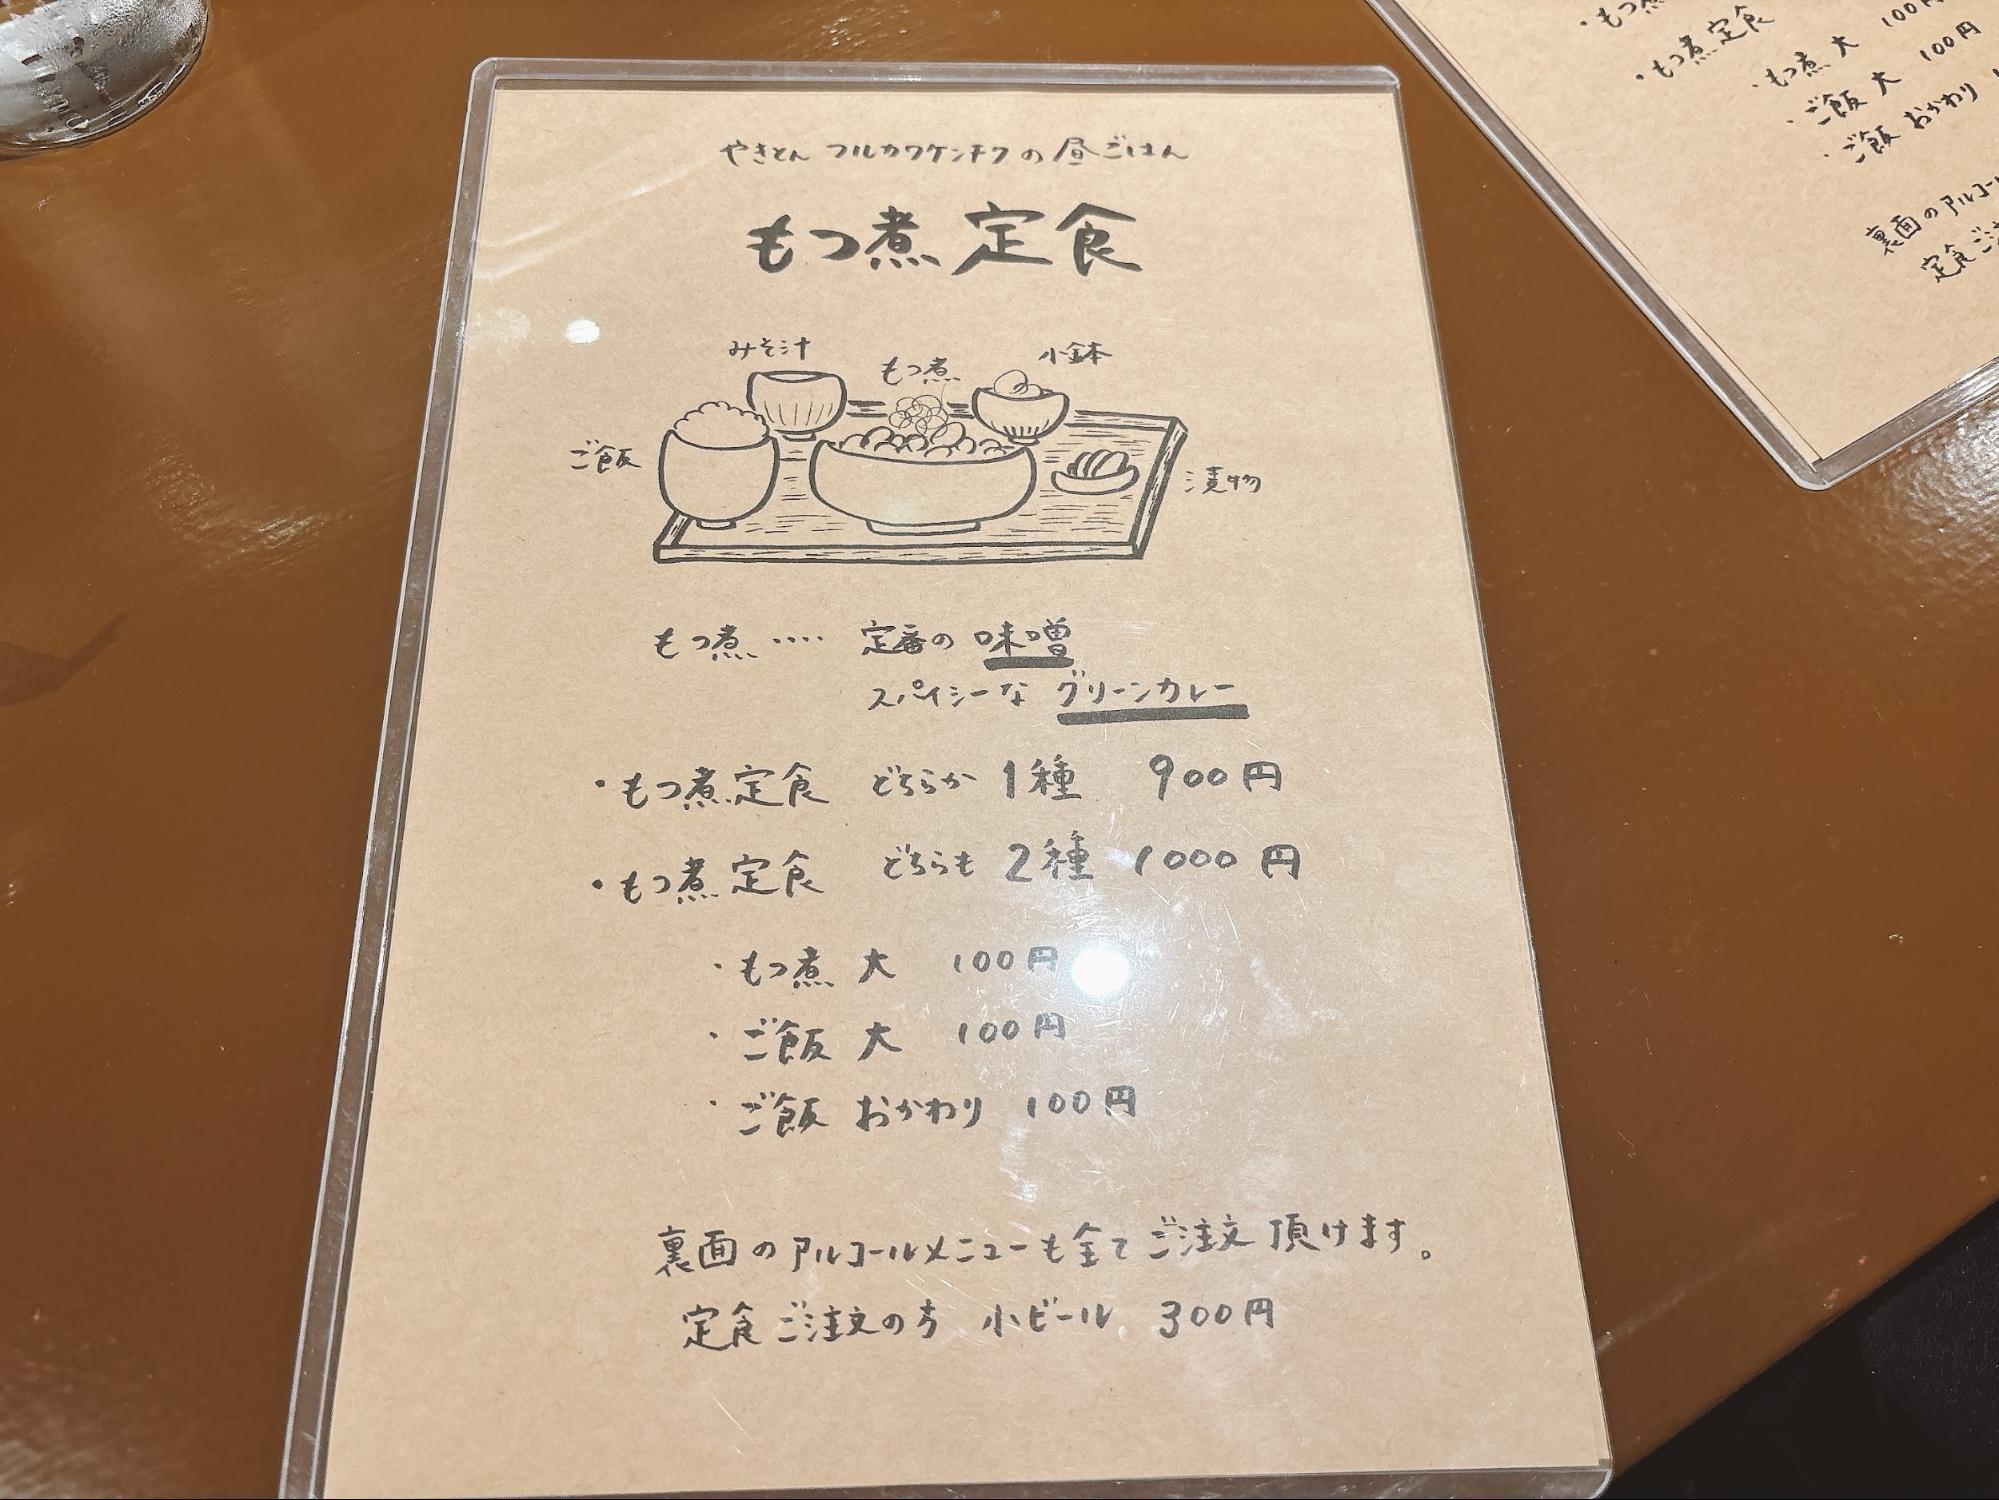 やきとん フルカワケンチクの昼ごはん
もつ煮定食
みそ汁
もつ煮
小鉢
ご飯
漬物
もつ煮‥‥ 定番の味噌
スパイシーな グリーンカレー
・もつ煮定食 どちらか 1種 900円
・もつ煮定食 どちらも 2種 1000円
・もつ煮 大 100円
・ご飯 大 100円
・ご飯 おかわり 100円
裏面のアルコールメニューも全てご注文頂けます。
定食ご注文の方 小ビール 300円
・もつ煮
・もつ煮定食
・もつ煮 大 100円
・ご飯 大 100円
・ご飯 おかわり
裏面のアルコール
定食ご